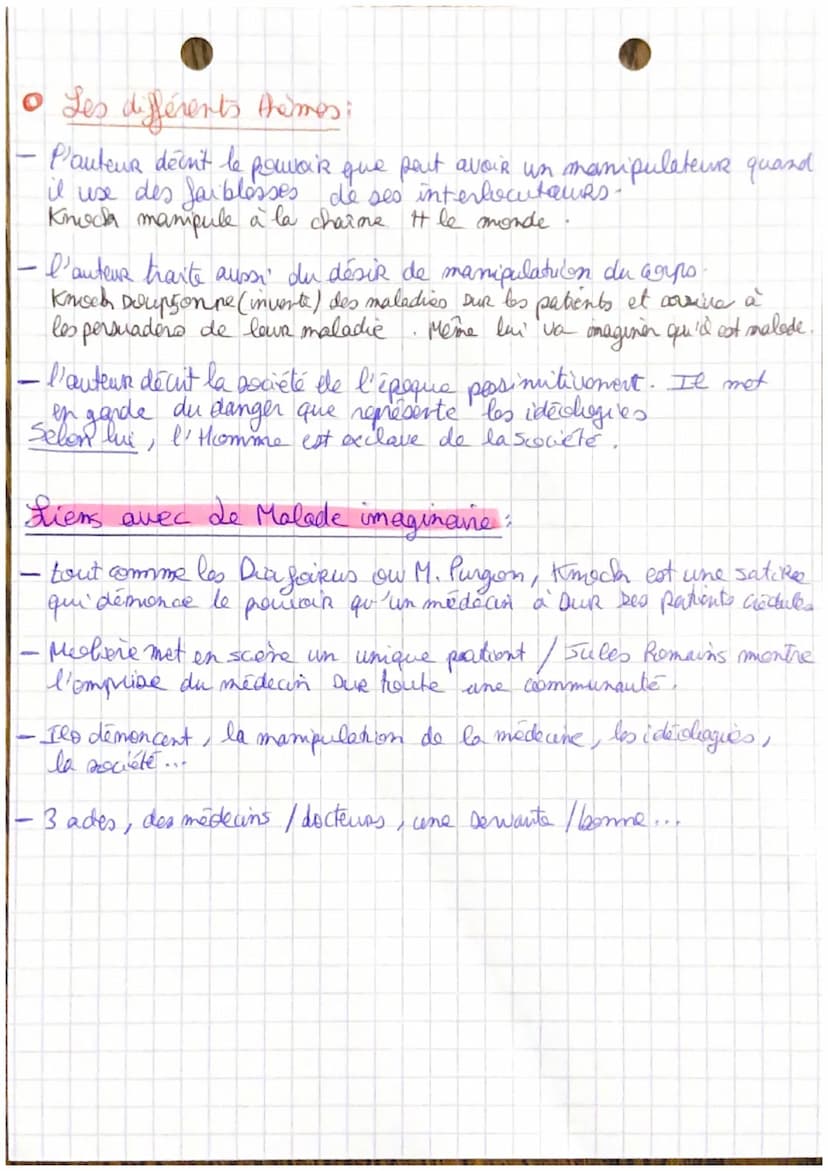 Les différents thèmes :
- l'auteur décrit le pouvoir que peut avoir un manipulateur quand
il use des faiblesses de ses interlocuteurs.
Knock manipule à la chaîne tt le monde.
- l'auteur traite aussi du désir de manipulation du corps.
Knock soupçonne (invente) des maladies sur les patients et arrive à
les persuadero de leur maladie. Même lui va imaginer qu'il est malade.
- l'auteur décrit la société de l'époque Il met
en garde du danger que représente les idéologies
Selon lui, l'Homme est esclave de la société.
Liens avec Le Malade imaginaire :
- tout comme les Diafoirus ou M. Purgon, Knock est une satire
qui dénonce le pouvoir qu'un médecin a sur ses patients crédules
- Molière met en scène un unique patient / Jules Romains montre
l'emprise du médecin sur toute une communauté.
- Ils dénoncent, la manipulation de la médecine, les idéologies,
la société...
- 3 actes, des médecins / docteurs, une servante / bonne...